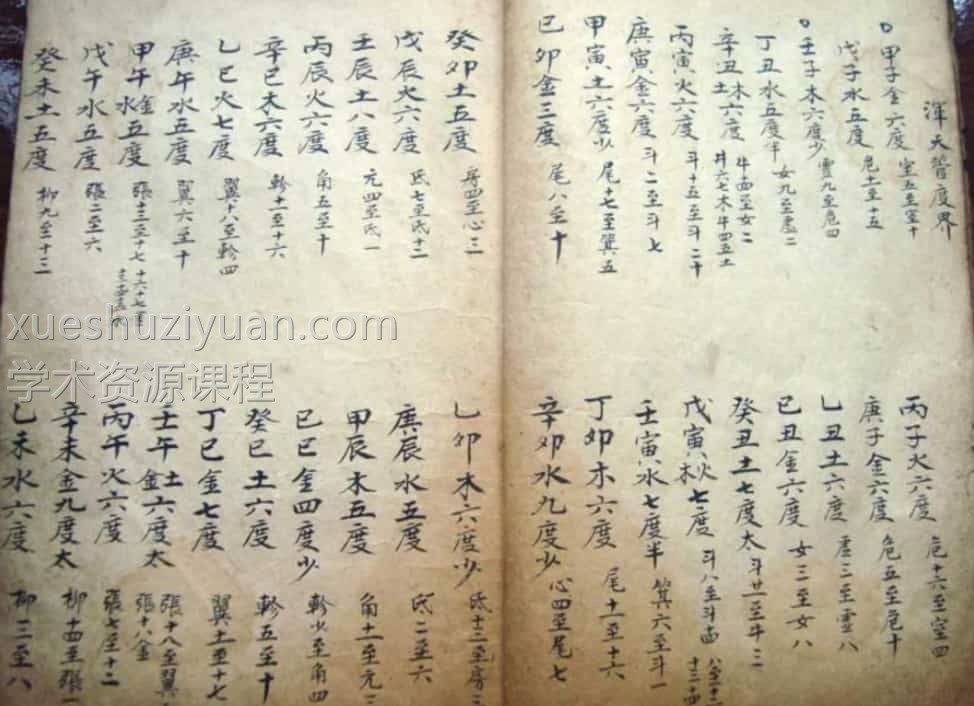 渾天晢度界
甲子金六度 室五至室十
丙子火六度 危十六至室四
戊子水五度 危十一至十五
庚子金六度 危五至危十
壬子木六度少 虛九至危四
乙丑土六度 虛三至虛八
丁丑水五度半 女九至虛二
己丑金六度 女三至女八
辛丑木土六度 牛四至女二 斗六七木牛四五土
癸丑土七度太 斗廿一至牛三
丙寅火六度 斗十五至斗二十
戊寅火水七度 斗八至斗十四
庚寅金六度 斗二至斗七
壬寅水七度半 箕六至斗一
甲寅土六度少 尾十七至箕五
丁卯木六度 尾十一至十六
己卯金三度 尾八至十
辛卯水九度少 心四至尾七
癸卯土五度 房四至心三
乙卯木六度少 氐十三至房三
戊辰火六度 氐七至氐十二
庚辰水五度 氐二至六
壬辰土八度 亢四至氐一
甲辰木五度 角十一至亢三
丙辰火六度 角五至十
己巳金四度少 軫少至角四
辛巳木六度 軫十一至十六
癸巳土六度 軫五至十
乙巳火七度 翼十八至軫四
丁巳金七度 翼十一至十七
庚午水五度 翼六至十
壬午金土六度太 張十八至翼 張十八金
甲午金水五度 張十三至十七
丙午火六度 張七至十二
戊午水五度 張二至六
辛未金九度太 柳十四至張一
癸未土五度 柳九至十三
乙未水六度 柳三至八
xueshuziyuan.com
学术资源课程